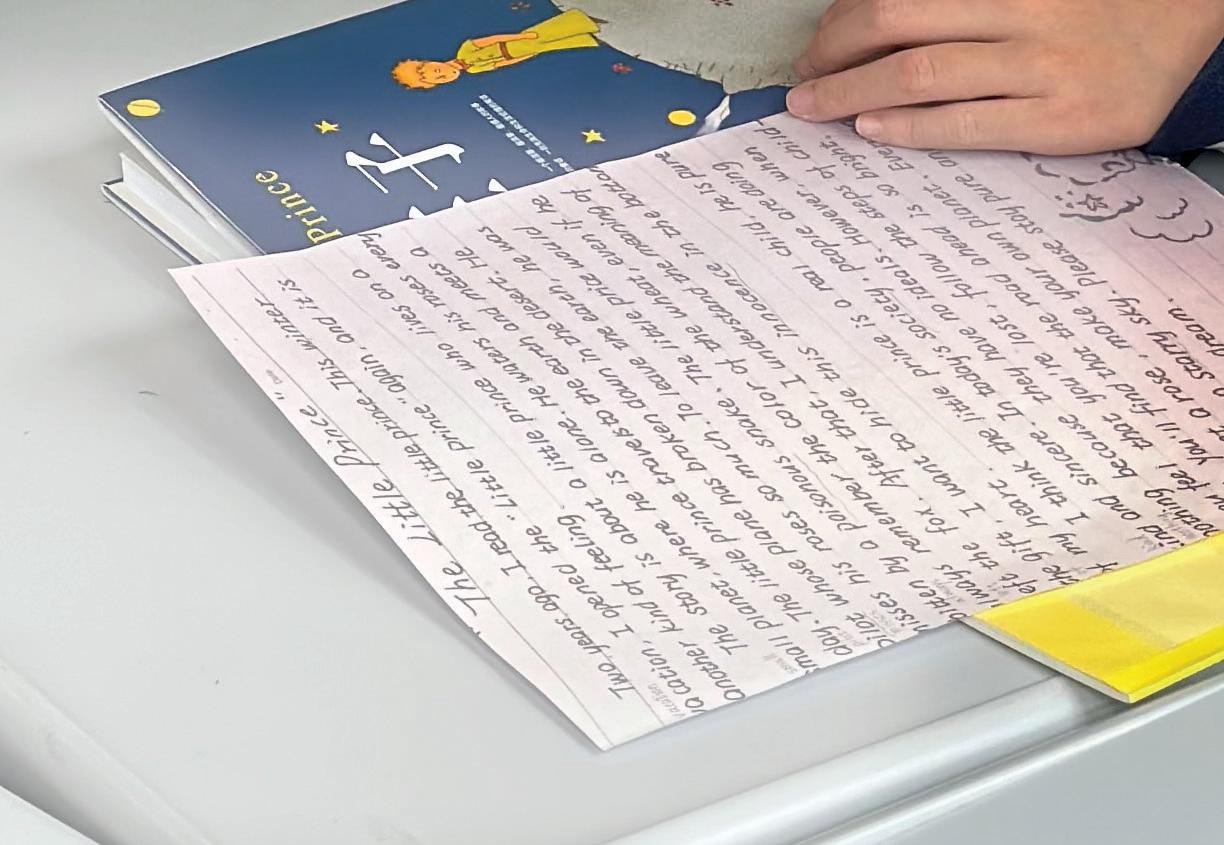 Prince
The Little Prince "
Two years ago, I read the little prince. This winter
vacation, I opened the "Little prince" again and it is
another kind of feeling.
The story is about a little prince who lives on a
small planet, where he is alone. He waters his roses every
day. The little prince travels to the earth and meets a
Pilot whose plane has broken down in the desert. He
misses his roses so much. To leave the earth, he was
bitten by a poisonous snake. The little price would
always remember the color of the wheat, even if he
left the fox. After that, I understand the meaning of
the gift, I want to hide this innocence in the
of my heart.
I think the little prince is a real child, he is pure
kind and sincere. In today's society, people are doing
nothing because they have no ideals. However, when
you feel that you're lost, follow the steps of child
You'll find that the road ahead is so bright.
a rose, make your own planet.
starry sky. Please stay pure
dream.